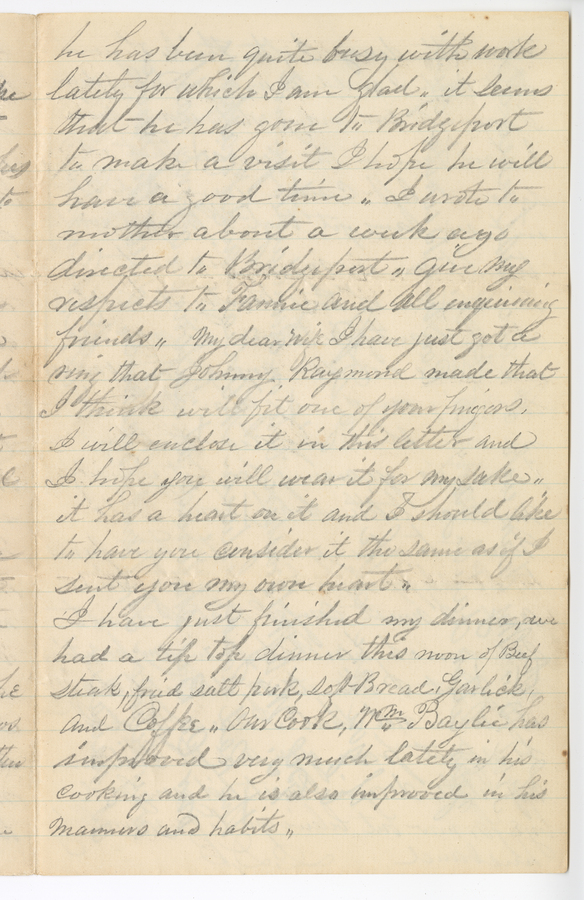 he has been quite busy with work
lately for which I am Glad „ it seems
that he has gone to Bridgeport
to make a visit I hope he will
have a good time „ I wrote to
mother about a week ago
directed to Bridgeport „ give my
respects to Fannie and all enquiring
friends „ My dear wife I have just got a
ring that Johnny Raymond made that
I think will fit one of your fingers.
I will enclose it in this letter and
I hope you will wear it for my sake „
it has a heart on it and I should like
to have you consider it the same as if I
sent you my own heart „
I have just finished my dinner, we
had a tip top dinner this noon of Beef
steak, fried salt pork, soft Bread, Garlick,
and Coffee „ Our Cook, Wm Baylie has
improved very much lately in his
cooking and he is also improved in his
manners and habits „